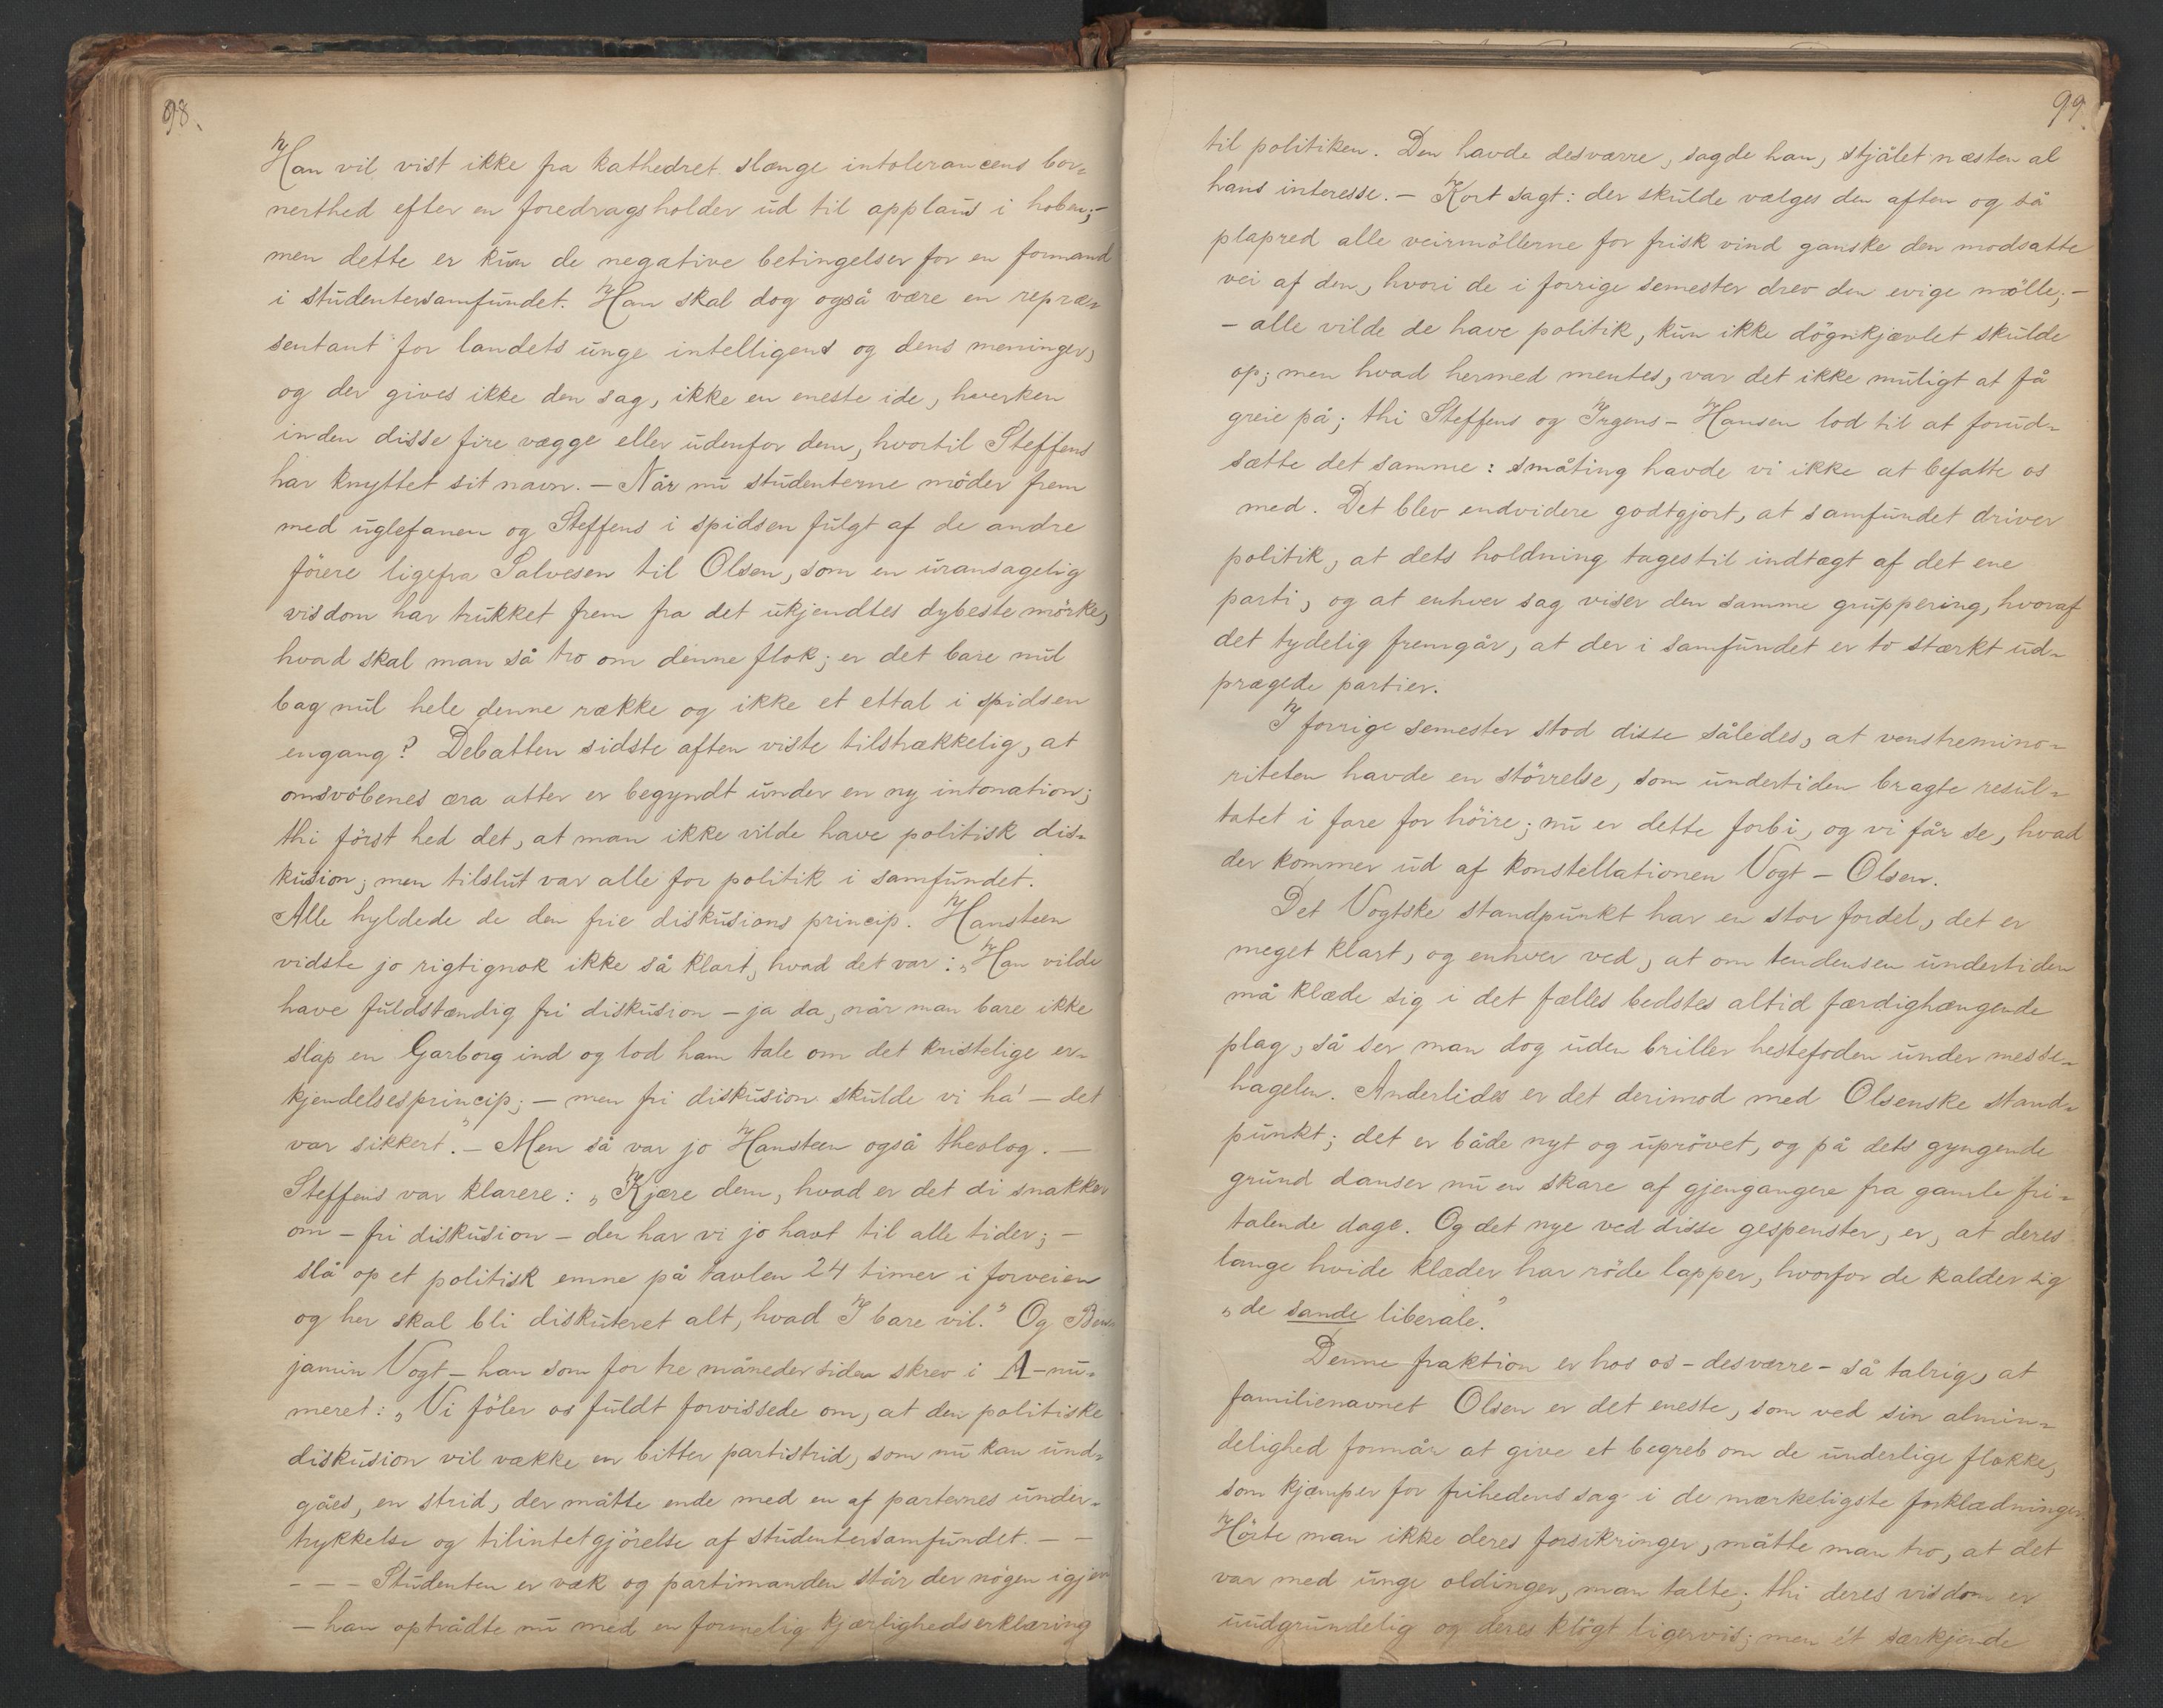 98.
Han vil vist ikke fra kathedret slænge intolerancens bor-
nerthed efter en foredragsholder ud til applaus i hoben;-
men dette er kun de negative betingelser for en formand
i studentersamfundet. Han skal dog også være en repræ-
sentant for landets unge intelligens og dens meninger,
og der gives ikke den sag, ikke en eneste ide, hverken
inden disse fire vægge eller udenfor dem, hvortil Steffens
har knyttet sit navn. – Når nu studenterne møder frem
med uglefanen og Steffens i spidsen fulgt af de andre
förere ligefra Salvesen til Olsen, som en uransagelig
visdom har trukket frem fra det ukjendtes dybeste mörke,
hvad skal man så tro om denne flok; er det bare nul
bag nul hele denne række og ikke et ettal i spidsen
engang? Debatten sidste aften viste tilstrækkelig, at
omsvöbenes æra atter er begyndt under en ny intonation;
thi först hed det, at man ikke vilde have politisk dis-
kusion; men tilslut var alle for politik i samfundet.
Alle hyldede de den frie diskusions princip. Hansteen
vidste jo rigtignok ikke så klart, hvad det var: „Han vilde
have fuldstændig fri diskusion – ja da, når man bare ikke
slap en Garborg ind og lod ham tale om det kristelige er-
kjendelsesprincip; – men fri diskusion skulde vi ha' – det
var sikkert.” – Men så var jo Hansteen også theolog. –
Steffens var klarere: „Kjære dem, hvad er det di snakker
om – fri diskusion – den har vi jo havt til alle tider; –
slå op et politisk emne på tavlen 24 timer i forveien
og her skal bli diskuteret alt, hvad I bare vil.” Og Ben-
jamin Vogt – han som for tre måneder siden skrev i A-nu-
meret: „Vi föler os fuldt forvissede om, at den politiske
diskusion vil vække en bitter partistrid, som nu kan und-
gåes, en strid, der måtte ende med en af parternes under-
trykkelse og tilintetgjörelse af studentersamfundet. – –
– – – Studenten er væk og partimanden står der nögen igjen
– han optrådte nu med en formelig kjærlighedserklæring
99.
til politiken. Den havde desværre, sagde han, stjålet næsten al
hans interesse. – Kort sagt: der skulde vælges den aften og så
plapred alle veirmöllerne for frisk vind ganske den modsatte
vei af den, hvori de i forrige semester drev den evige mölle; –
– alle vilde de have politik, kun ikke dögnkjævlet skulde
op; men hvad hermed mentes, var det ikke muligt at få
greie på; thi Steffens og Irgens-Hansen lod til at forud-
sætte det samme: småting havde vi ikke at befatte os
med. Det blev endvidere godtgjort, at samfundet driver
politik, at dets holdning tages til indtægt af det ene
parti, og at enhver sag viser den samme gruppering, hvoraf
det tydelig fremgår, at der i samfundet er to stærkt ud-
prægede partier.
I forrige semester stod disse således, at venstremino-
riteten havde en störrelse, som undertiden bragte resul-
tatet i fare for höire; nu er dette forbi, og vi får se, hvad
der kommer ud af konstellationen Vogt – Olsen.
Det Vogtske standpunkt har en stor fordel, det er
meget klart, og enhver ved, at om tendensen undertiden
må klæde sig i det fælles bedstes altid færdighængende
plag, så ser man dog uden briller hestefoden under messe-
hagelen. Anderledes er det derimod med Olsenske stand-
punkt; det er både nyt og uprövet, og på dets gyngende
grund danser nu en skare af gjengangere fra gamle fri-
talende dage. Og det nye ved disse gespenster, er, at deres
lange hvide klæder har röde lapper, hvorfor de kalder sig
„de sande liberale.”
Denne fraktion er hos os – desværre – så talrig, at
familienavnet Olsen er det eneste, som ved sin almin-
delighed formår at give et begreb om de underlige flokke,
som kjæmper for frihedens sag i de mærkeligste forklædninger.
Hörte man ikke deres forsikringer, måtte man tro, at det
var med unge oldinger, man talte; thi deres visdom er
uudgrundelig og deres klögt ligervis; men ét særkjende